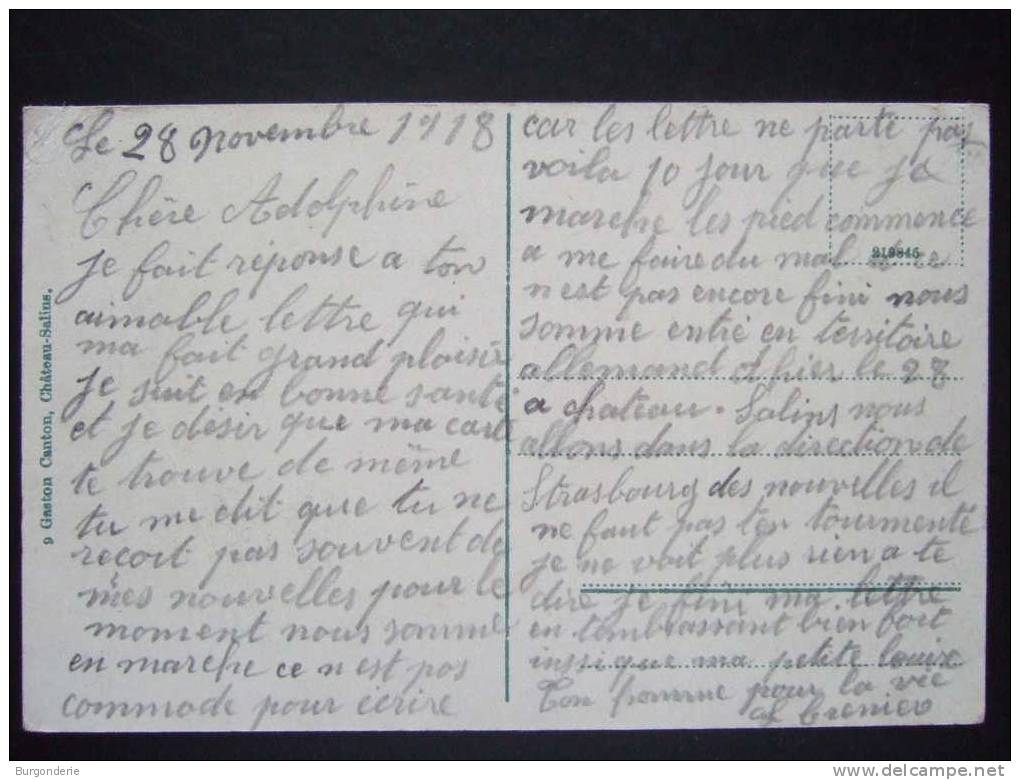 Le 28 novembre 1918
Chère Adolphine
je fait réponse a ton
aimable lettre qui
ma fait grand plaisir
je suit en bonne santé
et je désir que ma carte
te trouve de même
tu me dit que tu ne
recoit pas souvent de
mes nouvelles pour le
moment nous somme
en marche ce n est pas
commode pour écrire
car les lettre ne parte pas
voila 10 jour que je
marche les pied commence
a me faire du mal et ce
n est pas encore fini nous
somme entré en territoire
allemand d hier le 27
a chateau-Salins nous
allons dans la direction de
Strasbourg des nouvelles il
ne faut pas ten tourmenté
je ne voit plus rien a te
dire je fini ma lettre
en tembrassant bien fort
inssi que ma petite louise
Ton homme pour la vie
219845
9 Gaston Canton, Château-Salins.
Burgonderie
delcampe.net